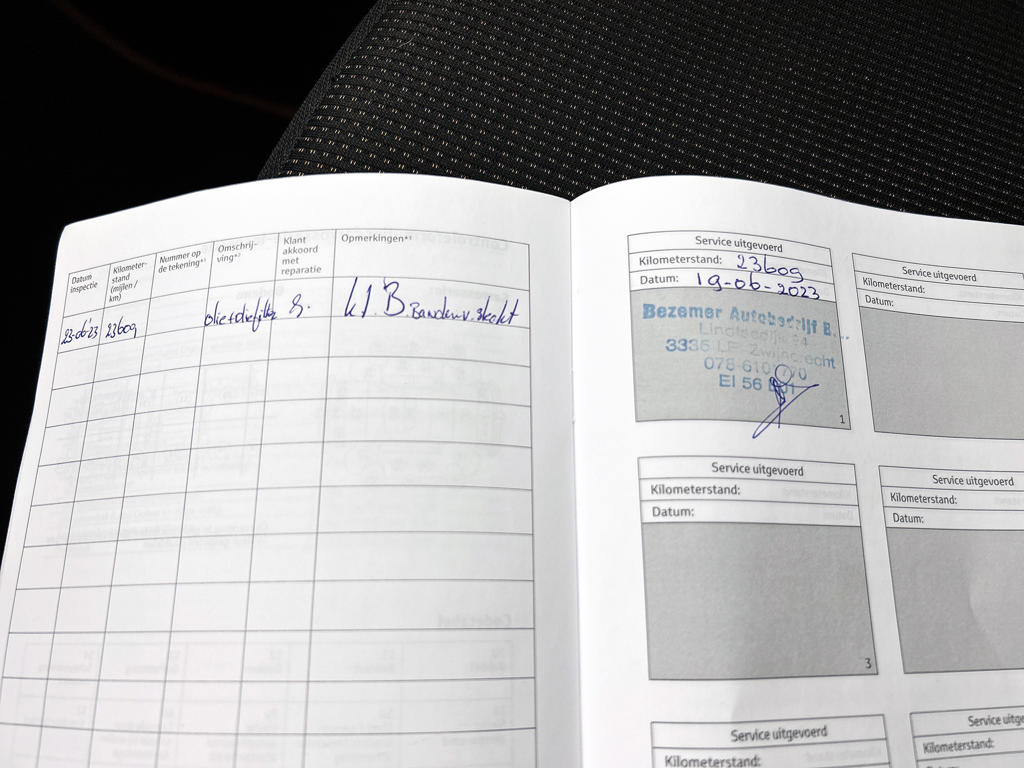 Datum inspectie
Kilometer-stand (mijlen / km)
Nummer op de tekening*¹
Omschrij-ving*²
Klant akkoord met reparatie
Opmerkingen*³
23609
Service uitgevoerd
Kilometerstand: 23609
Datum: 19-06-2023
Bezemer Autobedrijf B.
3336 LE Zwijndrecht
078-610
EI 56
1
Service uitgevoerd
Kilometerstand:
Datum:
Service uitgevoerd
Kilometerstand:
Datum:
3
Service uitgevoerd
Kilometerstand:
Datum:
Service uitgevoerd
Kilometerstand:
Service uitge
Kilometerstand: